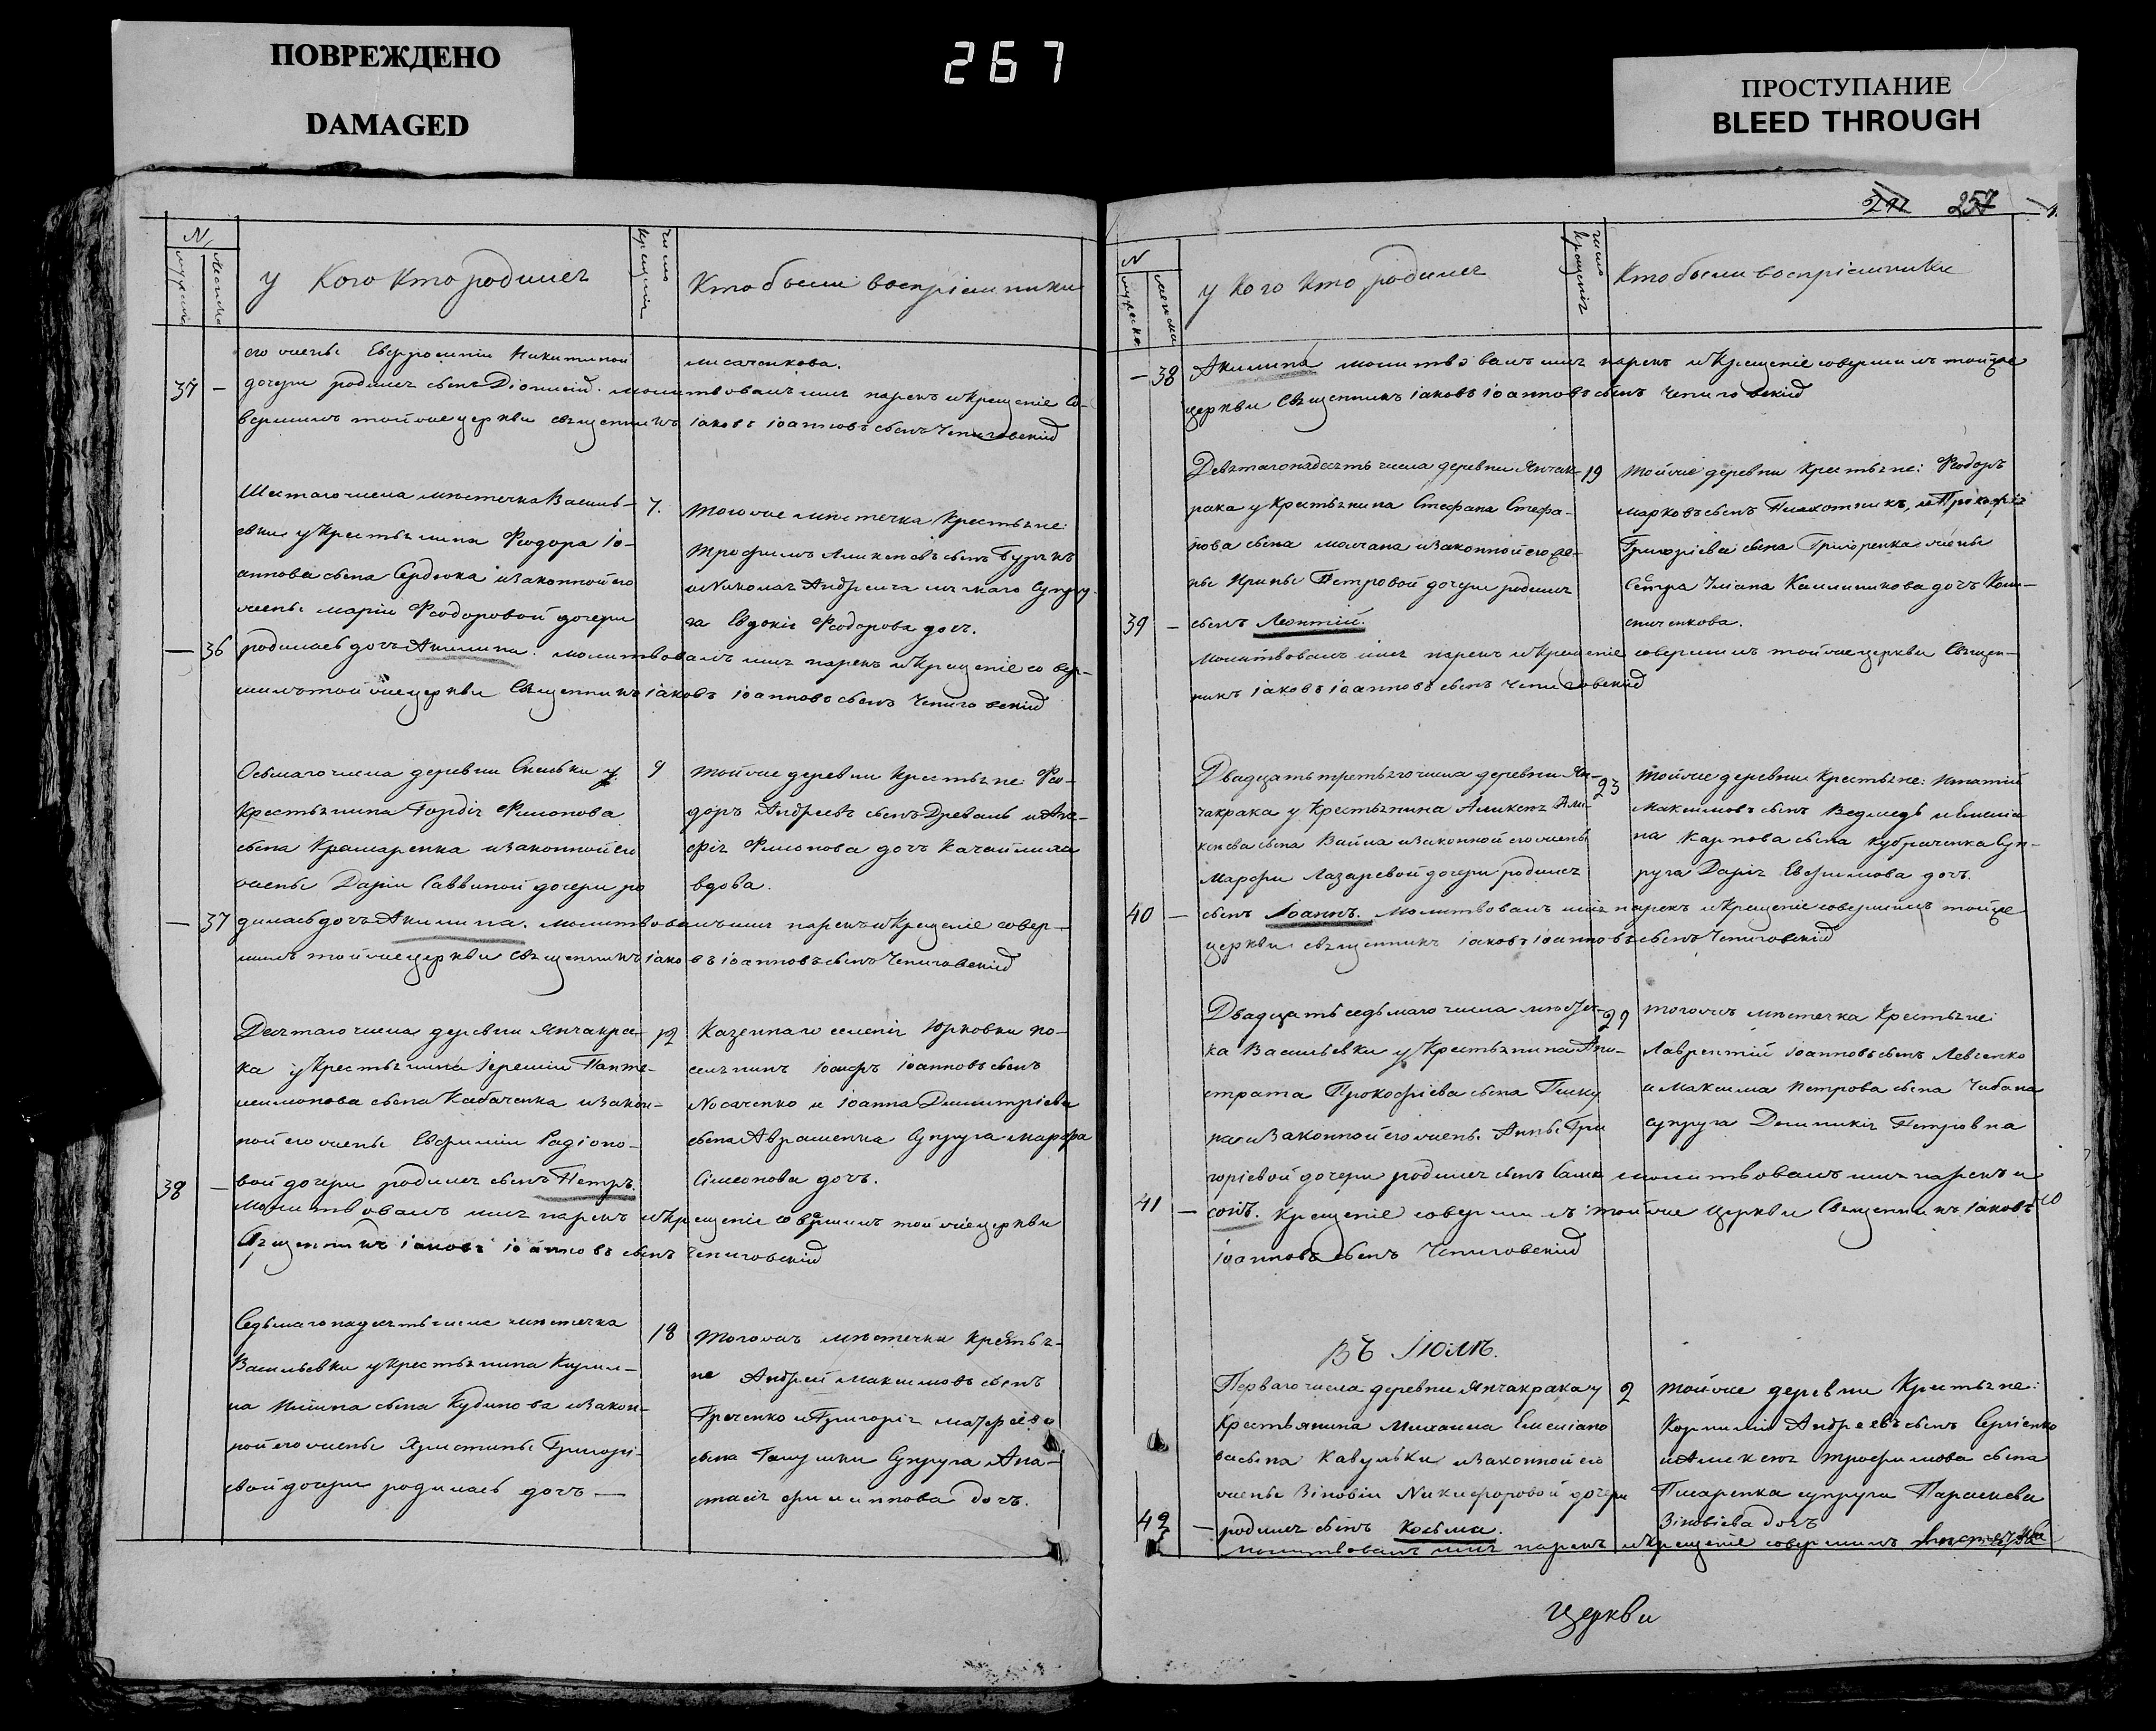 ПОВРЕЖДЕНО
DAMAGED
267
ПРОСТУПАНИЕ
BLEED THROUGH
257
N
мужеска
женска
у Кого кто родился
число крещенія
Кто были воспріемники
его жены Евфросиніи Никитиной
37 — дочери родился сынъ Діонисій. молитвовалъ имя нарекъ и крещеніе со-
вершилъ тойже церкви священникъ іаковъ іоанновъ сынъ Чепиговскій
Шестаго числа мѣстечка Василь-
евки у крестьянина Ѳеодора Іо-
аннова сына Сердюка и законной его
жены маріи Ѳеодоровой дочери
— 36 родилась дочь Акилина. молитвовалъ имя нарекъ и крещеніе совер-
шилъ тойже церкви Священникъ іаковъ іоанновъ сынъ Чепиговскій
7. Тогоже мѣстечка крестьяне:
Трофимъ Алексѣевъ сынъ
и Николая Андреича супру-
га Евдокія Ѳеодорова дочь.
Осьмаго числа деревни Скельки у
Крестьянина Гордія Филонова
сына Крамаренка и законной его
жены Даріи Саввиной дочери ро
— 37 дилась дочь Акилина. молитвовалъ имя нарекъ и крещеніе совер-
шилъ тойже церкви священникъ іаковъ іоанновъ сынъ Чепиговскій
9 Тойже деревни крестьяне: Ѳео-
доръ Андреевъ сынъ Древаль и Ага-
фія Филонова дочь
вдова.
Десятаго числа деревни Янчакра-
ка у Крестьянина Іереміи Панте-
леимонова сына Кабаченка и закон-
ной его жены Евфиміи Родіоно-
38 — вой дочери родился сынъ Петръ.
Молитвовалъ имя нарекъ и крещеніе совершилъ тойже церкви
Священникъ іаковъ іоанновъ сынъ Чепиговскій
12 Казеннаго селенія Юрковки по-
селянинъ Іосифъ Іоанновъ сынъ
Носаченко и Іоанна Димитріева
сына Аврашенка Супруга марфа
Симеонова дочь.
Седьмагонадцать числа мѣстечка
Васильевки у крестьянина Кирил-
ла сына Кудинова и закон-
ной его жены Христины Григорі-
евой дочери родилась дочь —
18 Тогожъ мѣстечки крестья-
не Андрей Максимовъ сынъ
Греченко и Григорія матфеева
сына Галушки Супруга Ана-
стасія филиппова дочь.
N
мужеска
женска
у Кого Кто родился
число крещенія
Кто были воспріемники
— 38 Акилина молитвовалъ имя нарекъ и крещеніе совершилъ тойже
церкви Священникъ іаковъ іоанновъ сынъ Чепиговскій
Девятагонадцать числа деревни Янчак-
рака у Крестьянина Стефана Стефа-
нова сына молчана и законной его же-
ны Ирины Петровой дочери родился
39 — сынъ Леонтій.
Молитвовалъ имя нарекъ и крещеніе совершилъ тойже церкви Священ-
никъ іаковъ іоанновъ сынъ Чепиговскій
19 Тойже деревни крестьяне: Ѳеодоръ
марковъ сынъ Плахотникъ, и Прокофія
Григоріева сына Григоренка жены
Сестра Уліана Каллиникова дочь Коло-
Двадцать третьяго числа деревни Ян-
чакрака у Крестьянина Алексея Але-
ксеева сына Вайла и законной его жены
Марфы Лазаревой дочери родился
40 — сынъ Іоаннъ. Молитвовалъ имя нарекъ и крещеніе совершилъ тойже
церкви священникъ іаковъ іоанновъ сынъ Чепиговскій
23 Тойже деревни Крестьяне: Игнатій
Максимовъ сынъ Ведмедь и Емелія
на Карпова сына Кубраченка Суп-
руга Дарія Евфимова дочь.
Двадцать седьмаго числа мѣстеч-
ка Васильевки у Крестьянина
Прокофіева сына
и законной его жены Анны Гри
горіевой дочери родился сынъ Самп молитвовалъ имя нарекъ и
41 — сонъ. Крещеніе совершилъ тойже церкви Священникъ іаковъ
іоанновъ сынъ Чепиговскій
29 Тогожъ мѣстечка Крестьяне:
Лаврентій іоанновъ сынъ Левченко
и Максима Петрова сына Чабана
супруга Домникія Петровна
ВЪ Іюлѣ.
Перваго числа деревни Янчакрака у
Крестьянина Михаила Емеліано
ва сына Кавульки и законной его
жены Зіновіи Никифоровой дочери
42 — родился сынъ Косьма.
молитвовалъ имя нарекъ и крещеніе совершилъ
2 Тойже деревни Крестьяне:
Корнилій Андреевъ сынъ Сергіенко
и Алексея Трофимова сына
Писаренка супруга Параскева
Зіновіева дочь
Церкви